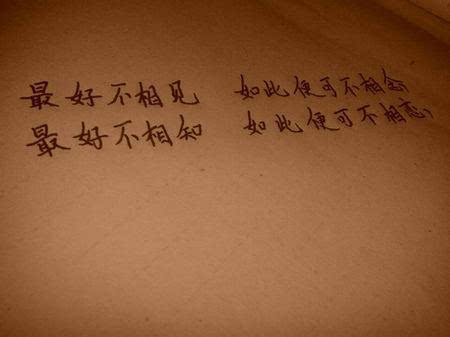 最好不相见 如此便可不相念
最好不相知 如此便可不相恋